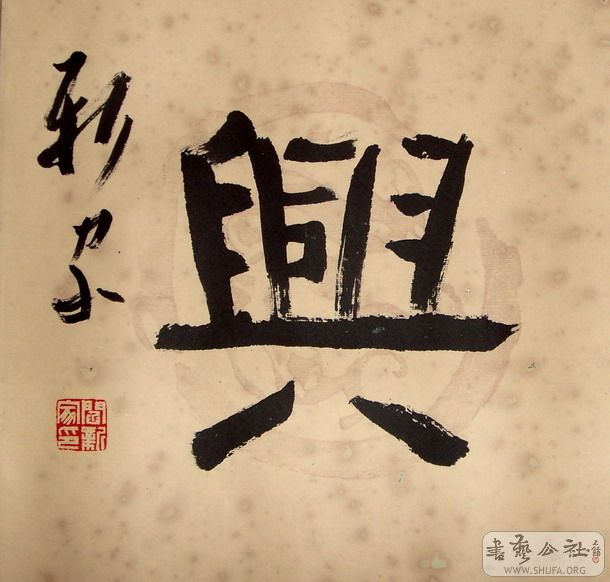 興
新家
閻新家印
書藝公社
WWW.SHUFA.ORG